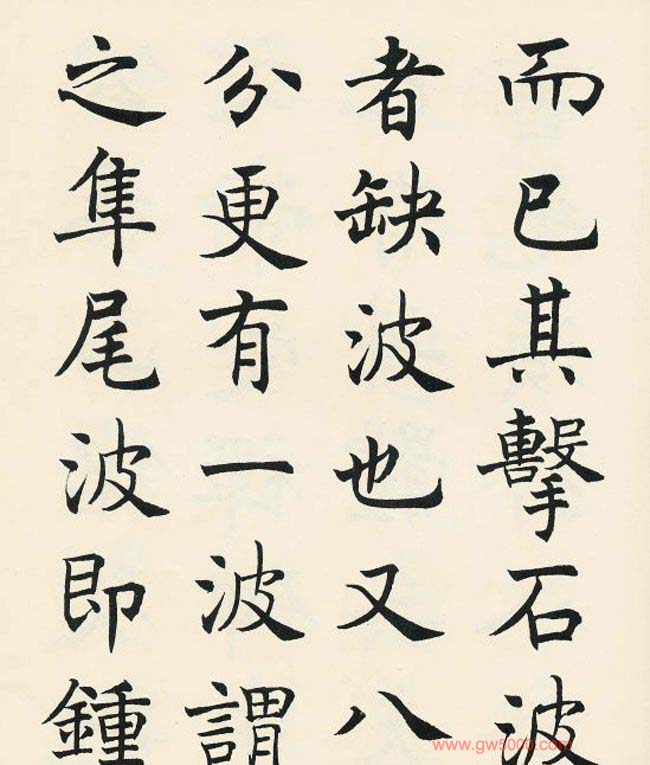 而已其擊石波
者缺波也又八
分更有一波謂
之隼尾波即鍾
www.gw5000.com